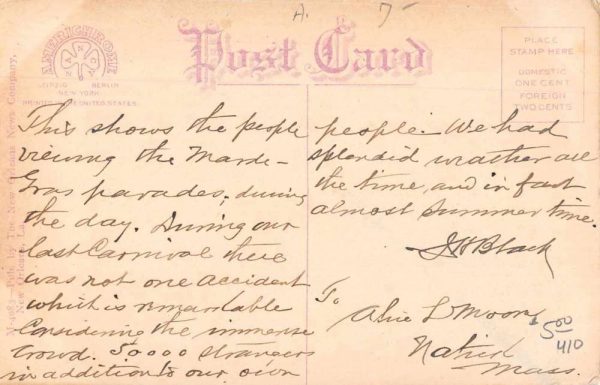 A. 75
AMERICHROME
LEIPZIG BERLIN
NEW YORK
UNITED STATES
Post Card
PLACE
STAMP HERE
DOMESTIC
ONE CENT
FOREIGN
TWO CENTS
Pub. by The New Orleans News Company,
New Orleans, La.
This shows the people
viewing the Marde-
Gras parades, during
the day. During our
last Carnival there
was not one accident
which is remarkable
Considering the immense
Crowd. 50000 strangers
in addition to our own
people. We had
splendid weather all
the time, and in fact
almost Summer time.
J H Black
To
Alice L Moore
Natick
Mass.
5.00
410